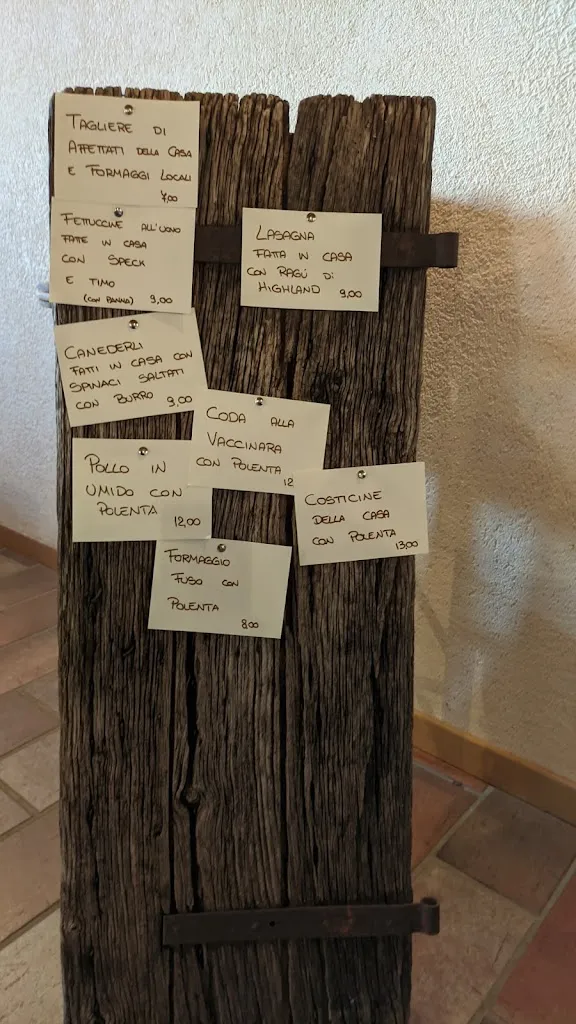 TAGLIERE DI
AFFETTATI DELLA CASA
E FORMAGGI LOCALI
7,00
FETTUCCINE ALL'UOVO
FATTE IN CASA
CON SPECK
E TIMO
(CON PANNA) 9,00
LASAGNA
FATTA IN CASA
CON RAGÚ DI
HIGHLAND 9,00
CANEDERLI
FATTI IN CASA CON
SPINACI SALTATI
CON BURRO 9,00
CODA ALLA
VACCINARA
CON POLENTA
12
POLLO IN
UMIDO CON
POLENTA
12,00
COSTICINE
DELLA CASA
CON POLENTA
13,00
FORMAGGIO
FUSO CON
POLENTA
8,00